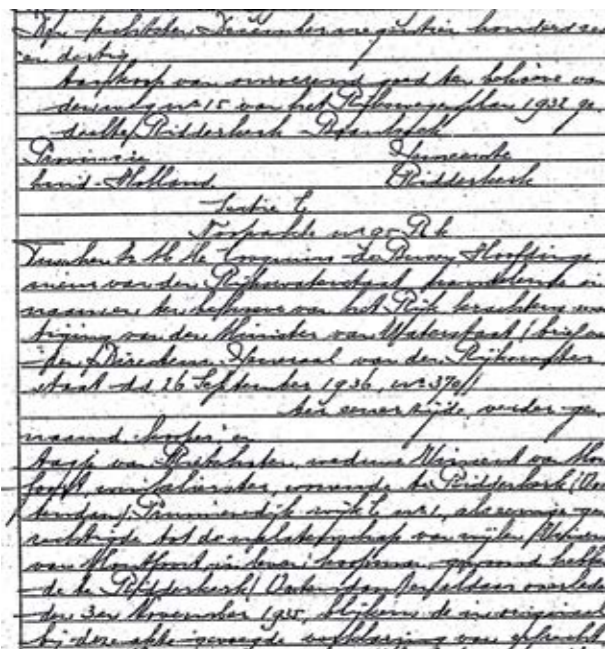 Den zestiende December negentien honderd zes
en dertig
Aankoop van onroerend goed ten behoeve van
den weg no 15 van het Rijkswegenplan 1932 ge
deelte Ridderkerk -
Provincie Gemeente
Zuid-Holland. Ridderkerk
Sectie C
no
Tusschen Hoofdinge
nieur van den Rijkswaterstaat handelende in
naam en ten behoeve van het Rijk krachtens mach
tiging van den Minister van Waterstaat (brief van
den Directeur Generaal van den Rijkswater
staat dd 26 September 1936, no 370/1
ter eener zijde, verder ge
naamd kooper, en
van weduwe Vincent van Mon
foort, winkelierster, wonende te Ridderkerk (Oos
tendam) wijk C no 1, als eenige ge
rechtigde tot de nalatenschap van wijlen Vincent
van Montfoort, in leven koopman, gewoond hebben
de te Ridderkerk (Oostendam) en aldaar overleden
den 3en November 1935, blijkens de in origineel
bij deze akte gevoegde verklaring van erfrecht